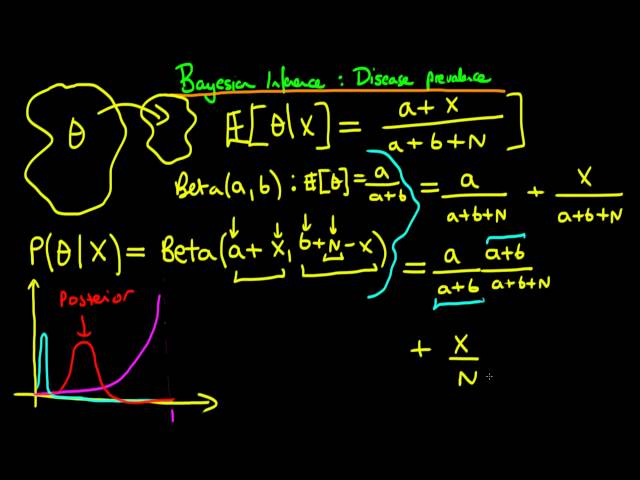 Bayesian Inference : Disease prevalence
θ
E[θ|X] = a + X / a + b + N ]
Beta(a, b) : E[θ] = a / a+b = a / a+b+N + X / a+b+N
P(θ|X) = Beta(a + X, b + N - X) = a / a+b a+b / a+b+N
Posterior
+ X / N
1